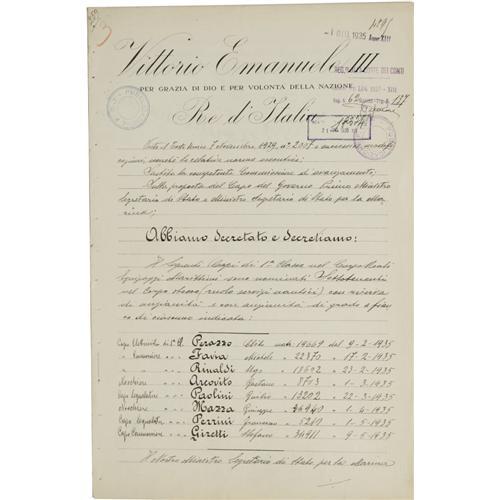 1 DIC 1935 Anno XIII
Vittorio Emanuele III
PER GRAZIA DI DIO E PER VOLONTÀ DELLA NAZIONE
Re d'Italia
Visto il Testo Unico 7 novembre 1929, n° 2007 e successive modifi
cazioni, nonché la relative norme esecutive;
Sentita la competente Commissione di avanzamento;
Sulla proposta del Capo del Governo Primo Ministro
Segretario di Stato e Ministro Segretario di Stato per la Ma
rina;
Abbiamo decretato e decretiamo:
I seguenti Capi di 1ª Classe nel Corpo Reali
Equipaggi Marittimi sono nominati Sottotenenti
nel Corpo stesso (ruolo servizi nautici) con riserva
di anzianità e con anzianità di grado a fian
co di ciascuno indicata:
Capo di 1ª Cl. Perazzo matr 19669 del 9-2-1935
" Cannoniere " " Favia Michele " 22370 " 17-2-1935
" " " Rinaldi Ugo " 18692 " 23-2-1935
Nocchiere " " Arcovito Gaetano " 3703 " 1-3-1935
Capo Segnalatore " " Paolini " 13202 " 22-3-1935
Nocchiere " " Mazza Giuseppe " 1-4-1935
Capo " " Perrini Francesco " 5210 " 1-5-1935
Capo Cannoniere " " Giretti Stefano " 34911 " 9-5-1935
Il Nostro Ministro Segretario di Stato per la Marina